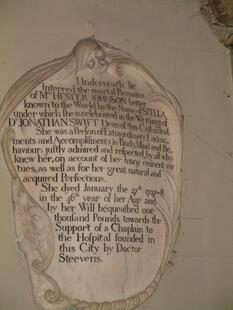 Underneath lie
Interred the mortal Remains
of Mrs HESTER JOHNSON better
known to the World by the Name of STELLA
under which she is celebrated in the Writings of
Dr JONATHAN SWIFT Dean of this Cathedral
She was a Person of Extraordinary Endow-
ments and Accomplishments in Body, Mind and Be-
haviour; justly admired and respected, by all who
knew her, on account of her many eminent vir-
tues, as well as for her great natural and
acquired Perfections.
She dyed January the 27th 1727-8
in the 46th year of her Age and
by her Will bequeathed one
thousand Pounds towards the
Support of a Chaplain to
the Hospital founded in
this City by Doctor
Steevens.